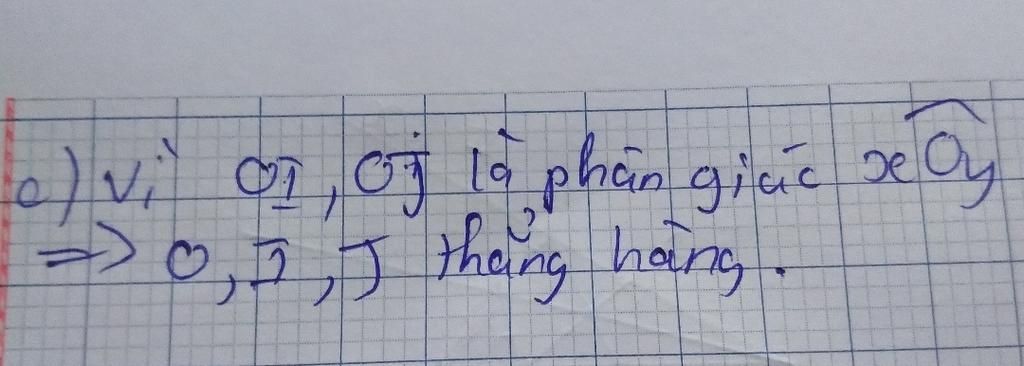 c) Vì OI, OJ là phân giác xOy
=> O, I, J thẳng hàng.